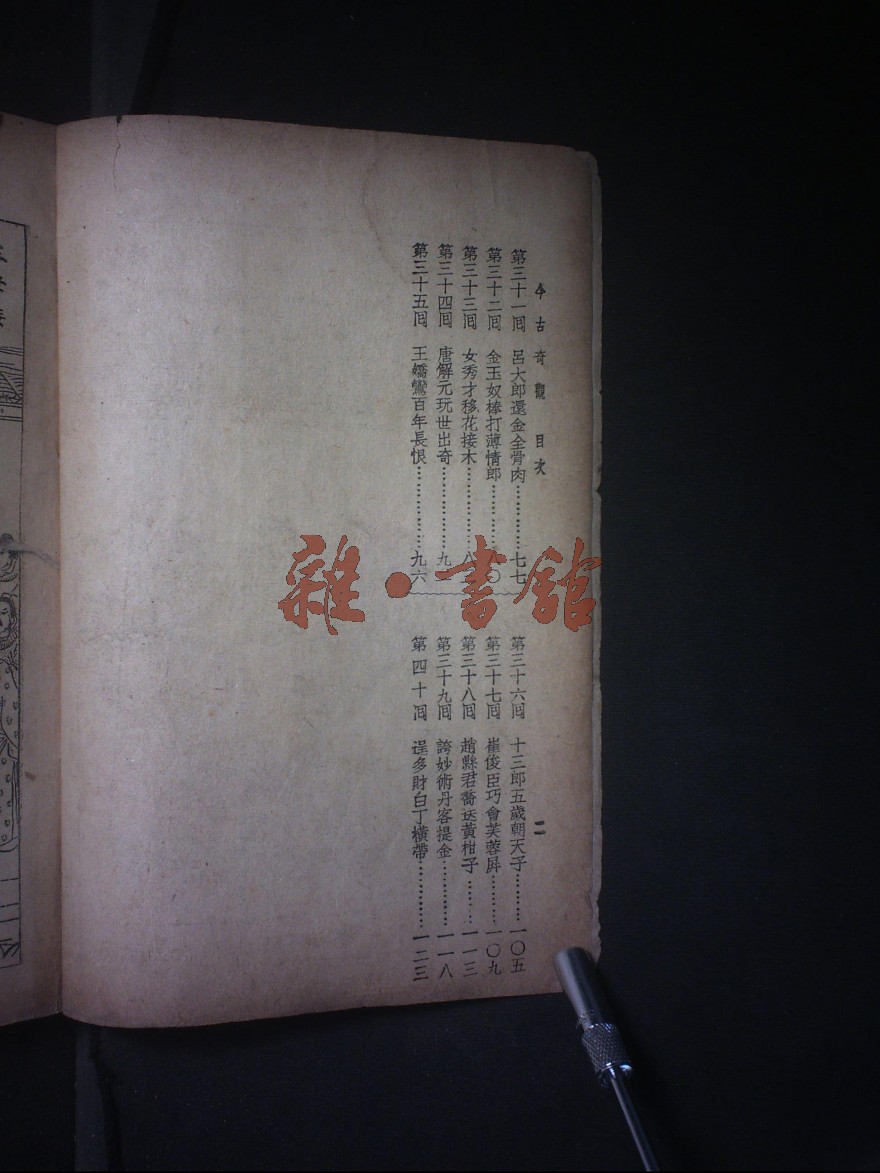 今古奇觀 目次 二
第三十一囘 呂大郎還金全骨肉…………七七
第三十二囘 金玉奴棒打薄情郎…………〇
第三十三囘 女秀才移花接木…………八
第三十四囘 唐解元玩世出奇…………九
第三十五囘 王嬌鸞百年長恨…………九六
第三十六囘 十三郎五歲朝天子…………一〇五
第三十七囘 崔俊臣巧會芙蓉屏…………一〇九
第三十八囘 趙縣君喬送黃柑子…………一一三
第三十九囘 誇妙術丹客提金…………一一八
第四十囘 逞多財白丁橫帶…………一二三
雜·書館